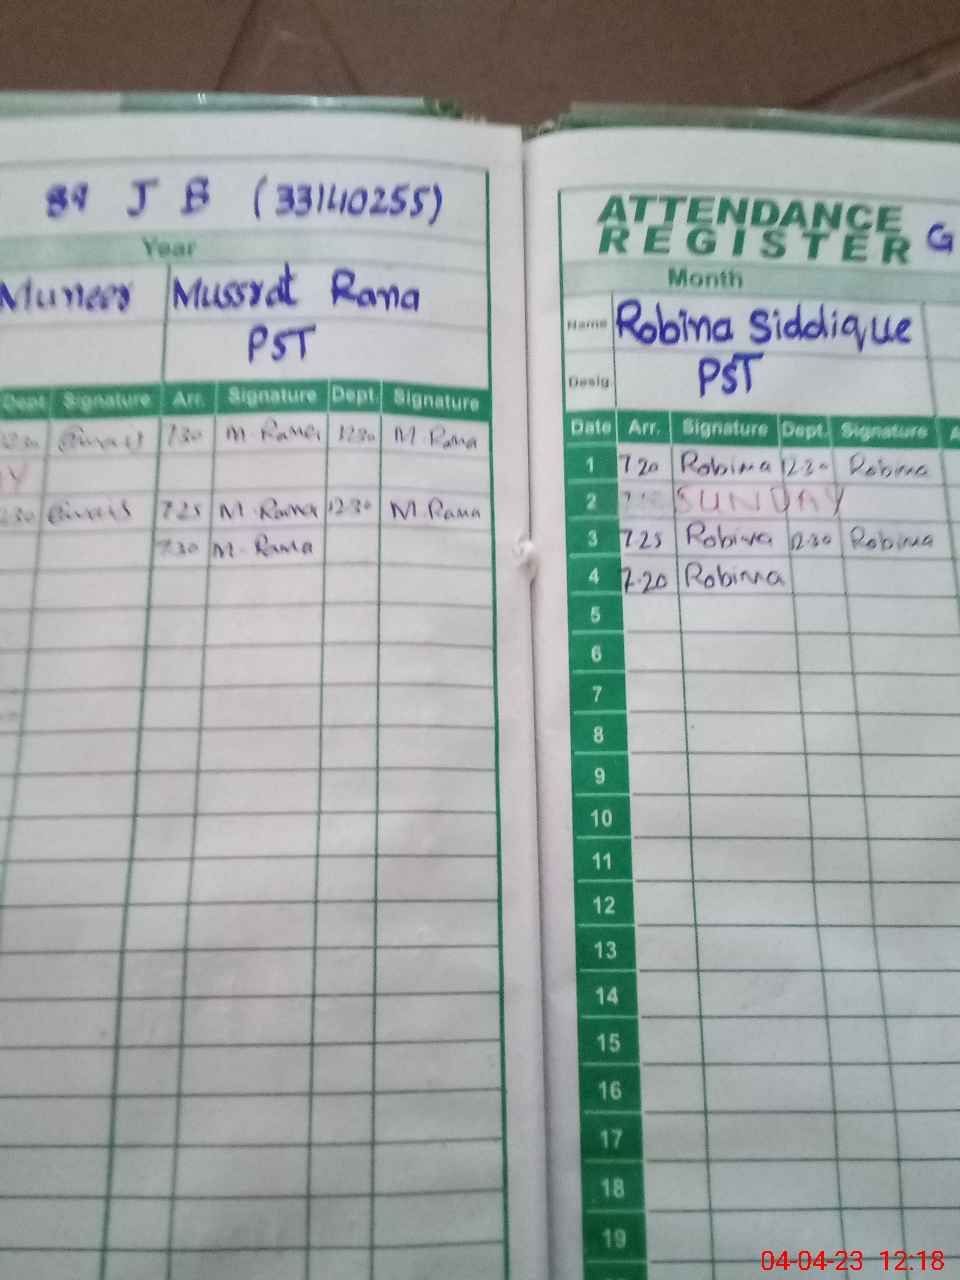 84 J B (33140255)
Year
Muneer Mussrat Rana
PST
Dept Signature Arr. Signature Dept. Signature
1230 7.30 M. Rana 1230 M. Rana
Y
1230 7.25 M. Rana 12.30 M. Rana
7.30 M. Rana
ATTENDANCE
REGISTER G
Month
Name Robina Siddique
Desig. PST
Date Arr. Signature Dept. Signature A
1 7.20 Robina 12.30 Robina
2 SUNDAY
3 7.25 Robina 12.30 Robina
4 7.20 Robinna
5
6
7
8
9
10
11
12
13
14
15
16
17
18
19
04-04-23 12:18